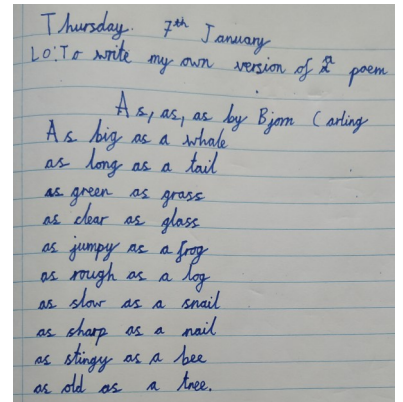 Thursday. 7th January
LO: To write my own version of a poem
As, as, as by Bjorn Carling
As big as a whale
as long as a tail
as green as grass
as clear as glass
as jumpy as a frog
as rough as a log
as slow as a snail
as sharp as a nail
as stingy as a bee
as old as a tree.